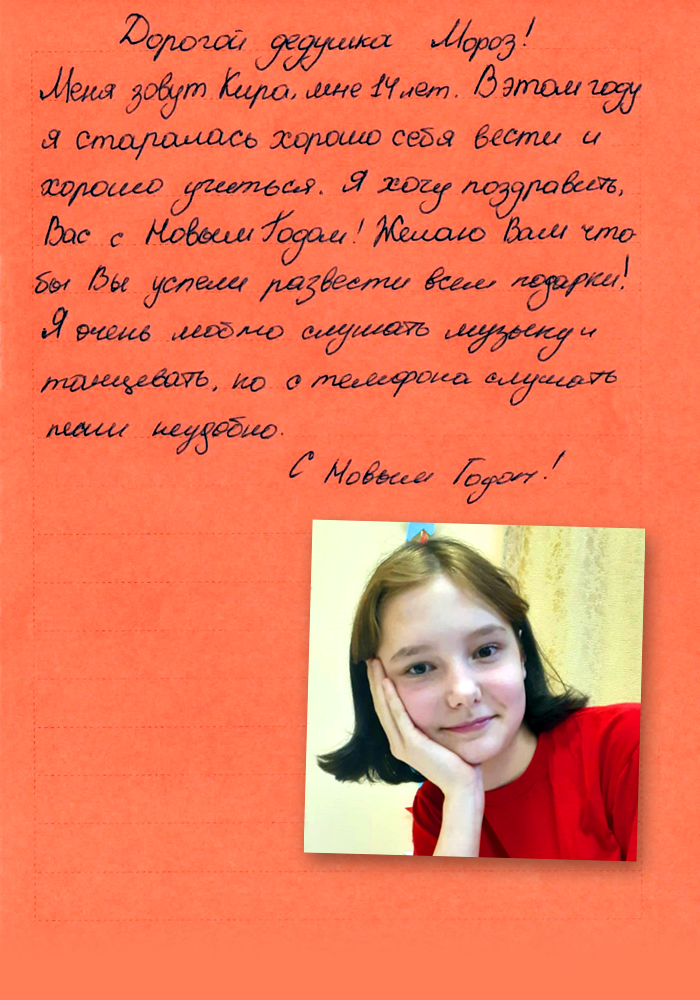 Дорогой дедушка Мороз!
Меня зовут Кира, мне 14 лет. В этом году
я старалась хорошо себя вести и
хорошо учиться. Я хочу поздравить,
Вас с Новым Годом! Желаю Вам что
бы Вы успели развести всем подарки!
Я очень люблю слушать музыку и
танцевать, но с телефона слушать
песни неудобно.
С Новым Годом!